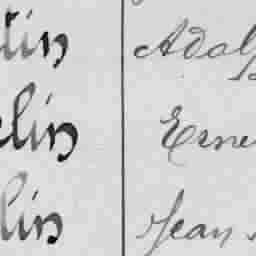 tin Adol
elin Erne
lin Jean